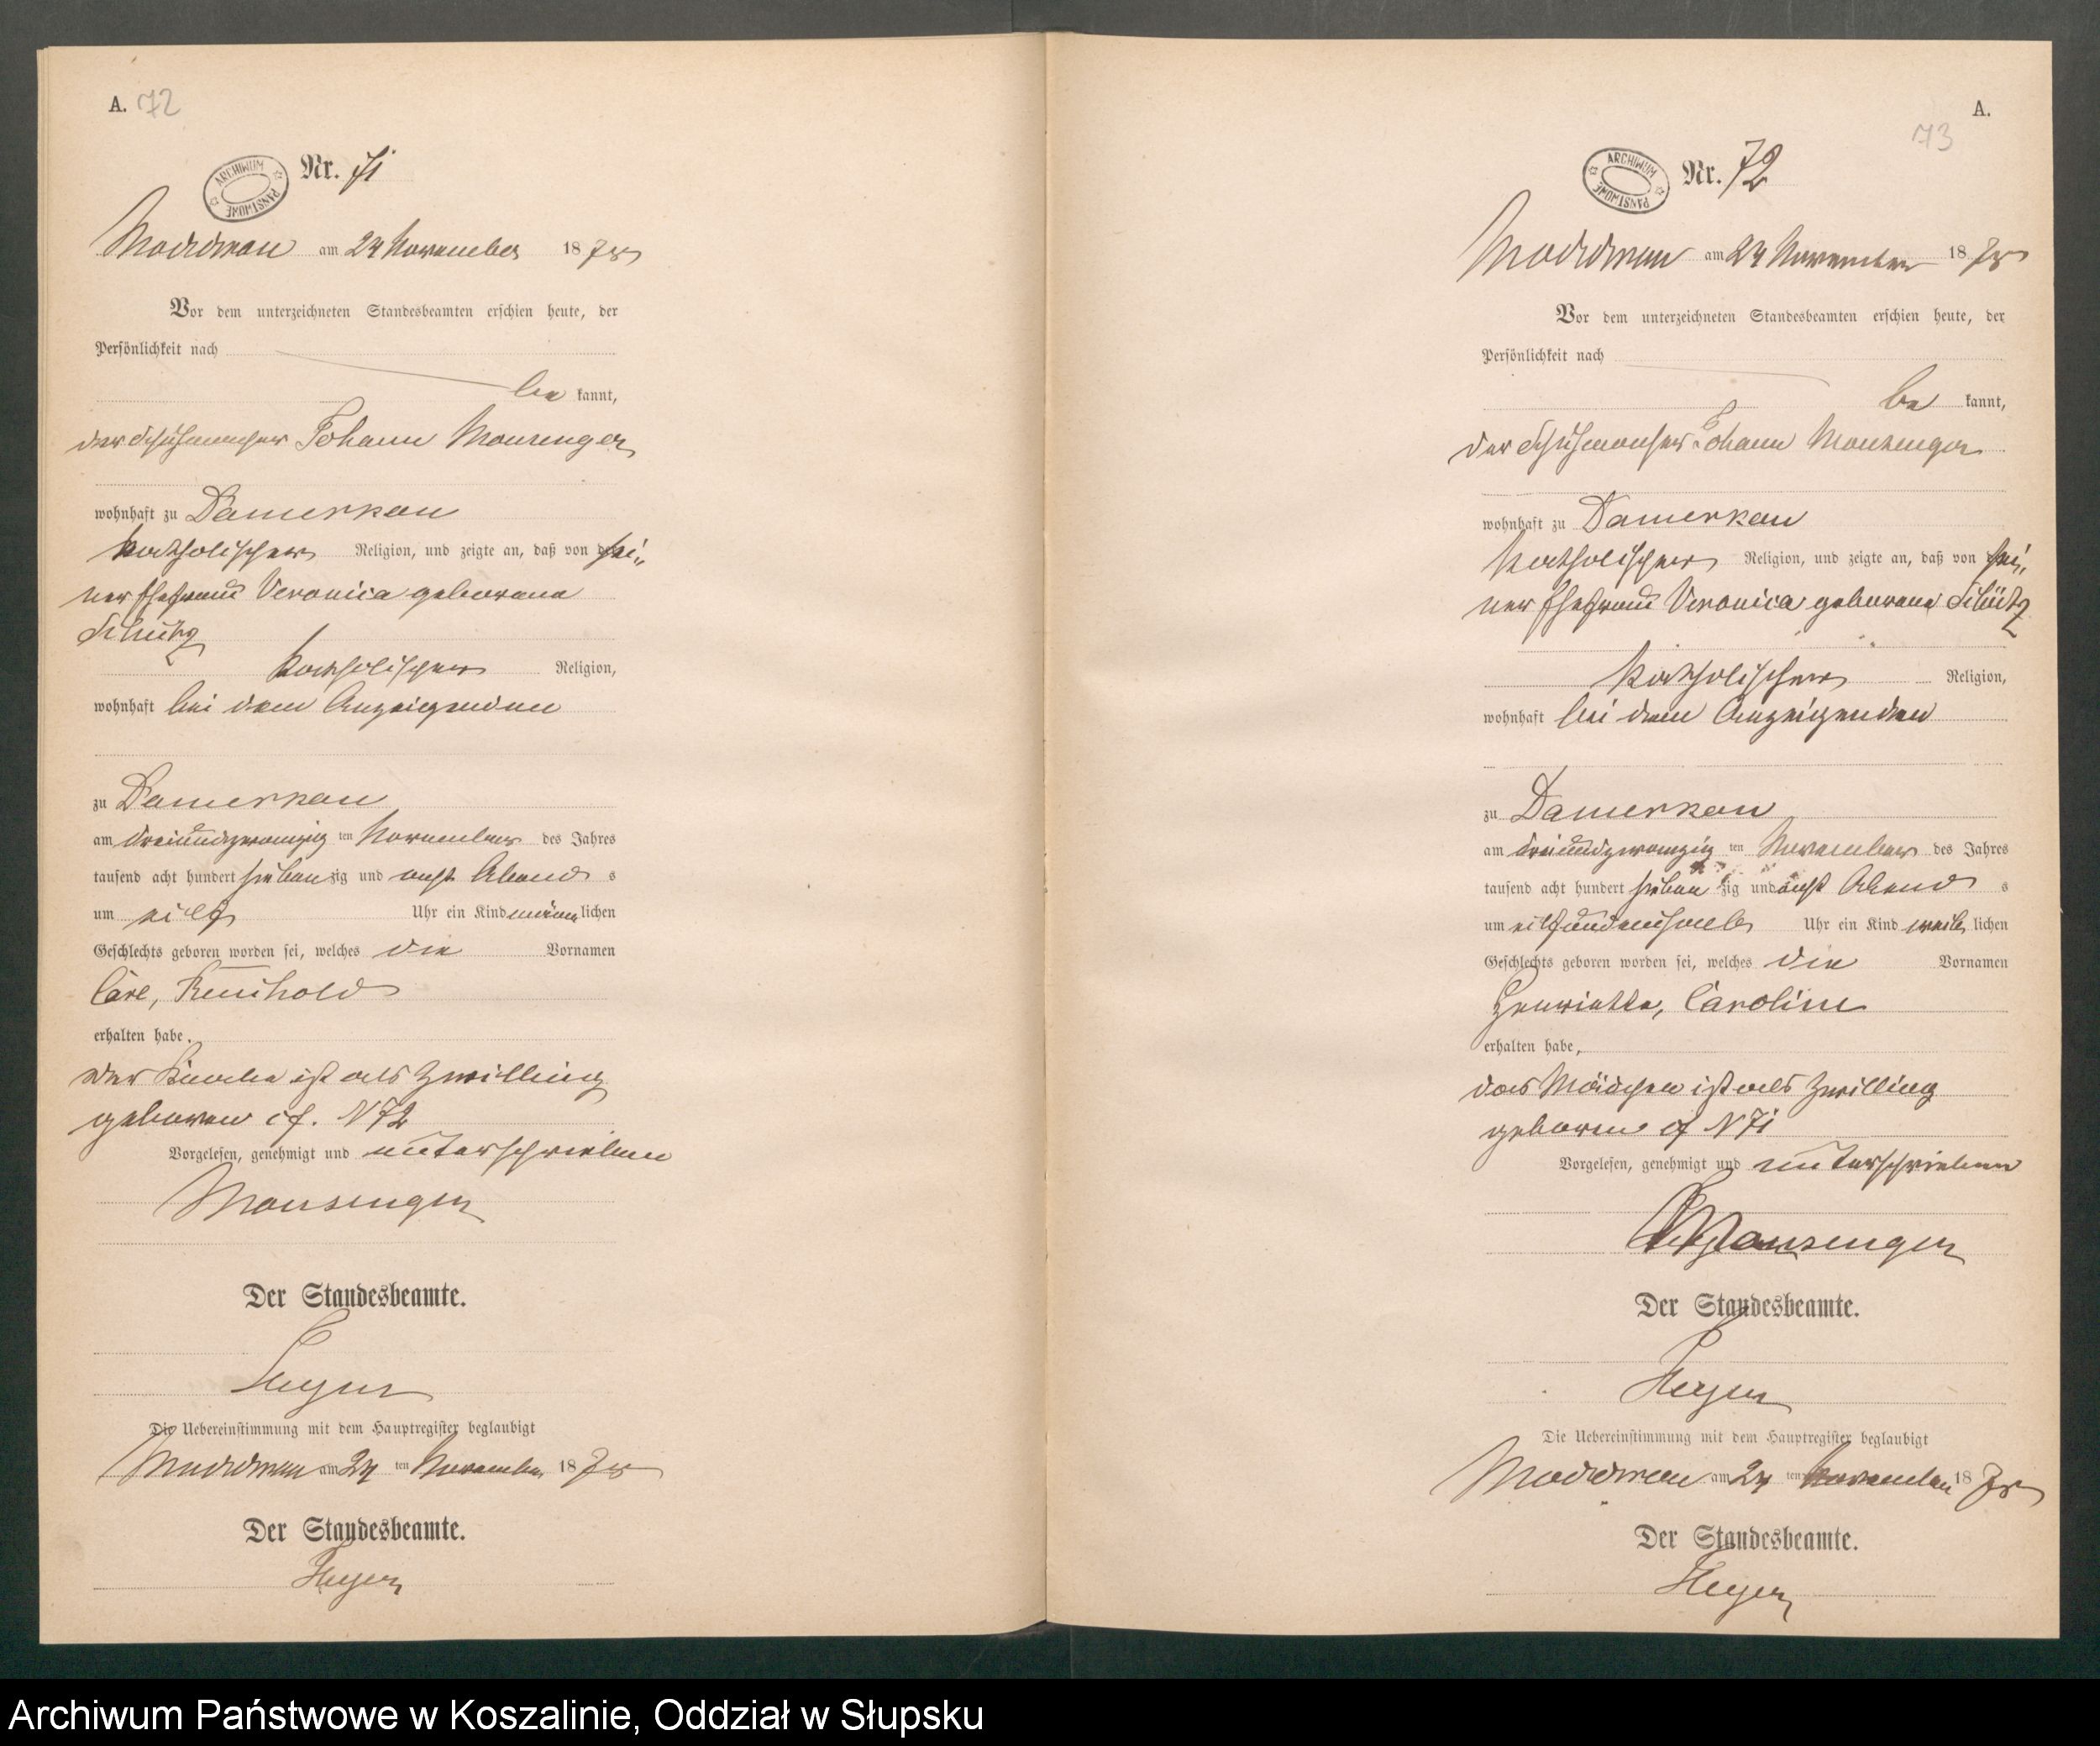 A. 72
ARCHIWUM PAŃSTWOWE
Nr. 71
Moddrow am 24 November 1878
Vor dem unterzeichneten Standesbeamten erschien heute, der
Persönlichkeit nach
be kannt,
der Johann Monsenger
wohnhaft zu Damerkau
katholischer Religion, und zeigte an, daß von sei„
ner Ehefrau Veronica geborene
Schütz
katholischer Religion,
wohnhaft bei dem Anzeigenden
zu Damerkau
am dreiundzwanzig ten November des Jahres
tausend acht hundert siebenzig und acht Abend s
um eilf Uhr ein Kind männlichen
Geschlechts geboren worden sei, welches die Vornamen
Carl, Reinhold
erhalten habe.
der Knabe ist als Zwilling
geboren cf. N 72
Vorgelesen, genehmigt und unterschrieben
Monsenger
Der Standesbeamte.
Heyer
Die Uebereinstimmung mit dem Hauptregister beglaubigt
Moddrow am 24 ten November 1878
Der Standesbeamte.
Heyer
A.
73
ARCHIWUM PAŃSTWOWE
Nr. 72
Moddrow am 24 November 1878
Vor dem unterzeichneten Standesbeamten erschien heute, der
Persönlichkeit nach
be kannt,
der Johann Monsenger
wohnhaft zu Damerkau
katholischer Religion, und zeigte an, daß von sei„
ner Ehefrau Veronica geborene Schütz
katholischer Religion,
wohnhaft bei dem Anzeigenden
zu Damerkau
am dreiundzwanzig ten November des Jahres
tausend acht hundert sieben zig und acht Abend s
um eilfundeinhalb Uhr ein Kind weib lichen
Geschlechts geboren worden sei, welches die Vornamen
Henriette, Caroline
erhalten habe,
das Mädchen ist als Zwilling
geboren cf N 71
Vorgelesen, genehmigt und unterschrieben
Monsenger
Der Standesbeamte.
Heyer
Die Uebereinstimmung mit dem Hauptregister beglaubigt
Moddrow am 24 ten November 1878
Der Standesbeamte.
Heyer
Archiwum Państwowe w Koszalinie, Oddział w Słupsku